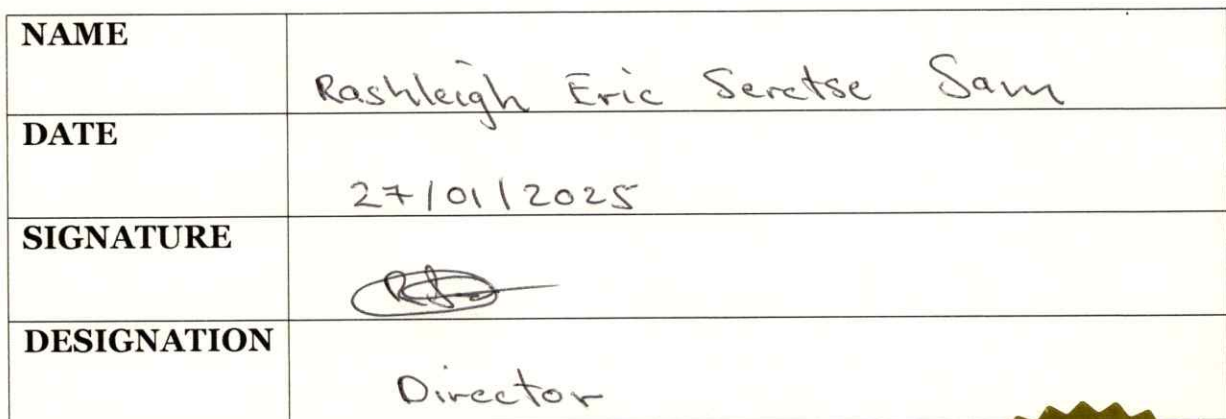 NAME
Rashleigh Eric Seretse Sam
DATE
27/01/2025
SIGNATURE
DESIGNATION
Director